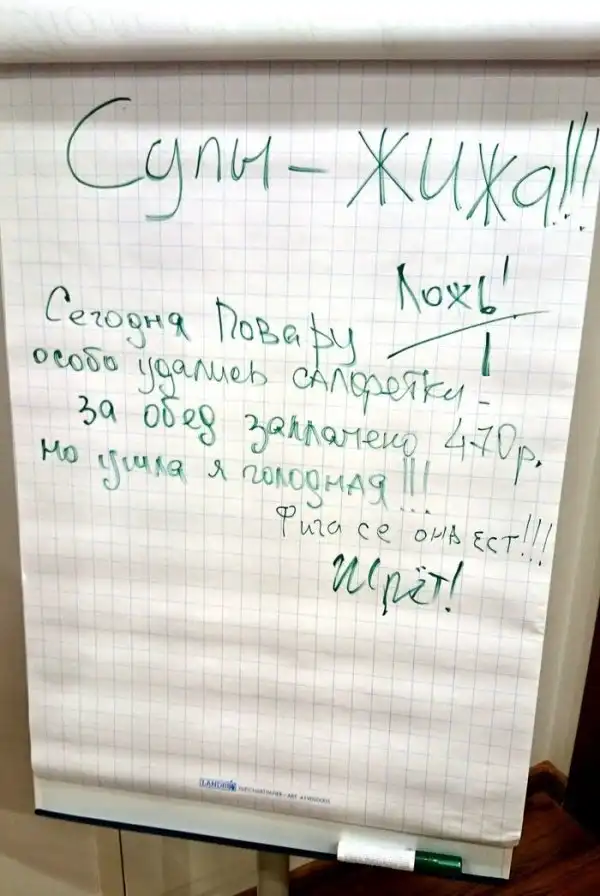 Супы - жижа!!!
Ложь!
Сегодня Повару
особо удались салфетки!
за обед заплачено 470р.
но ушла я голодная!!!
Фига се она ест!!!
Жрёт!
LANDRE